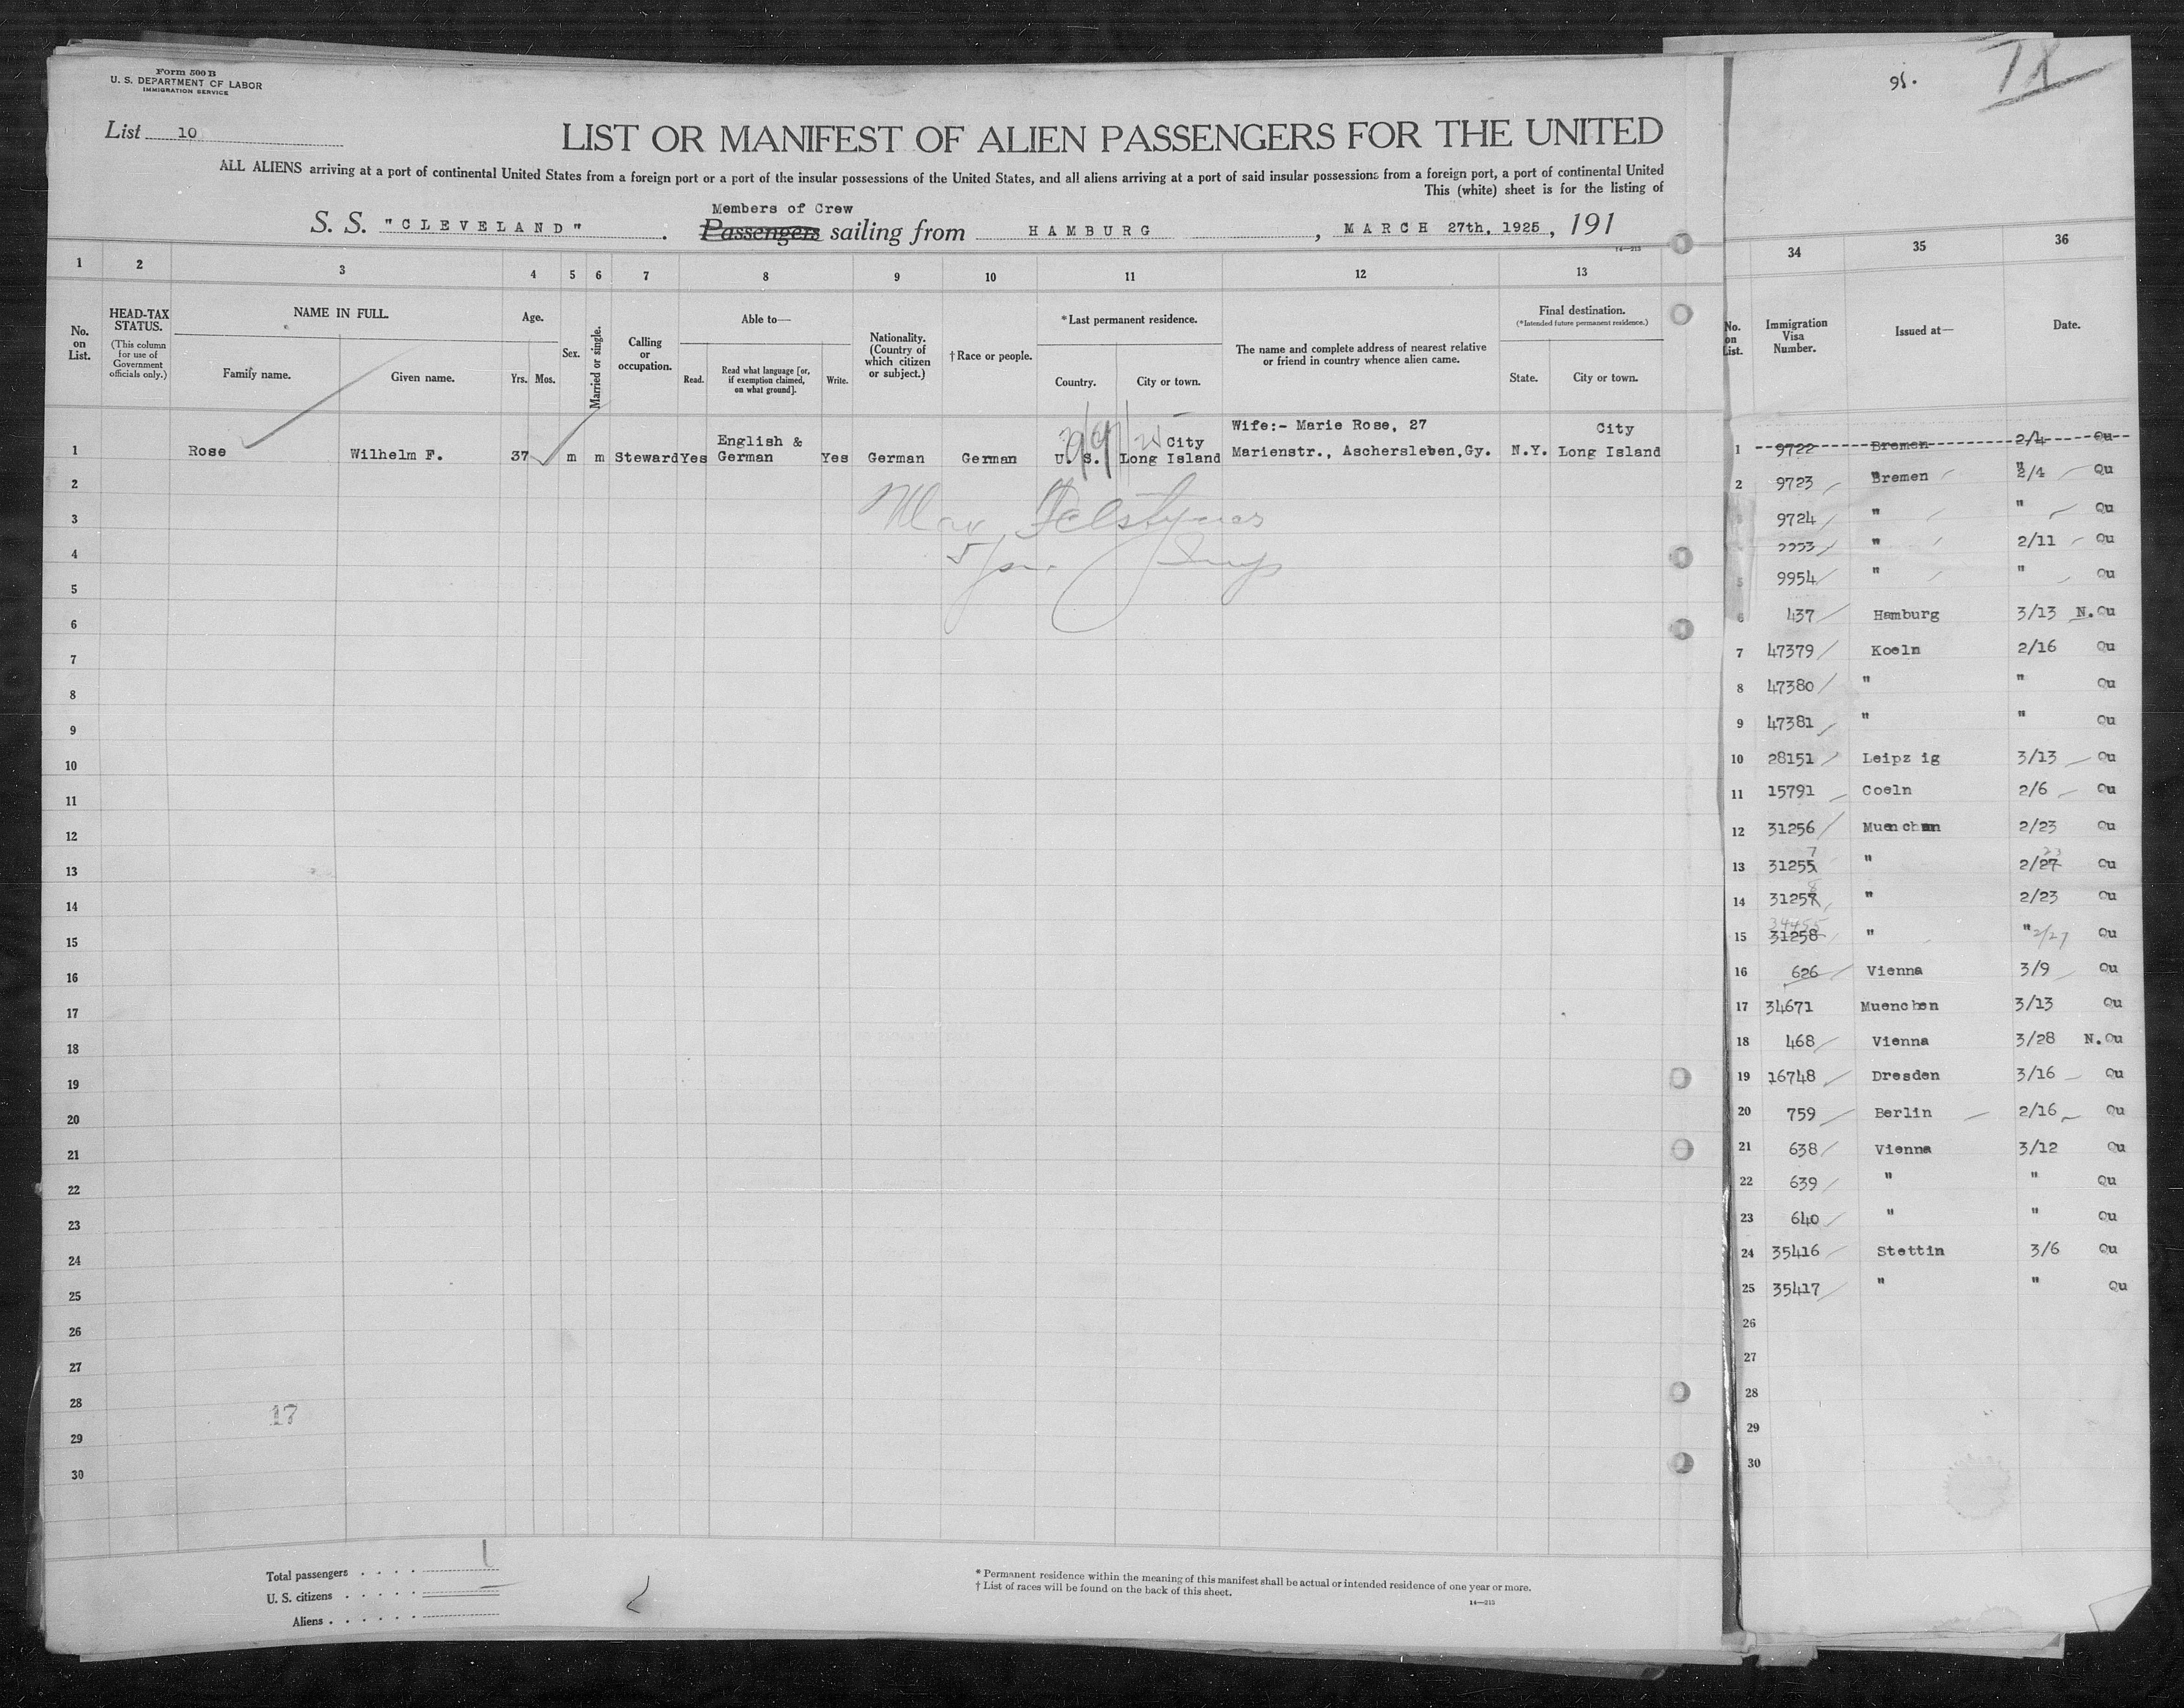 Form 500 B
U. S. DEPARTMENT OF LABOR
IMMIGRATION SERVICE
List 10
LIST OR MANIFEST OF ALIEN PASSENGERS FOR THE UNITED
ALL ALIENS arriving at a port of continental United States from a foreign port or a port of the insular possessions of the United States, and all aliens arriving at a port of said insular possessions from a foreign port, a port of continental United
This (white) sheet is for the listing of
Members of Crew
S. S. "CLEVELAND" . Passengers sailing from HAMBURG , MARCH 27th, 1925 , 191
14—213
1 2 3 4 5 6 7 8 9 10 11 12 13
No. on List.
HEAD-TAX STATUS.
(This column for use of Government officials only.)
NAME IN FULL.
Family name. Given name.
Age.
Yrs. Mos.
Sex.
Married or single.
Calling or occupation.
Able to—
Read. Read what language [or, if exemption claimed, on what ground]. Write.
Nationality. (Country of which citizen or subject.)
† Race or people.
*Last permanent residence.
Country. City or town.
The name and complete address of nearest relative or friend in country whence alien came.
Final destination.
(*Intended future permanent residence.)
State. City or town.
English & City Wife:- Marie Rose, 27 City
1 Rose Wilhelm F. 37 m m Steward Yes German Yes German German U. S. Long Island Marienstr., Aschersleben, Gy. N.Y. Long Island
2
3
4
5
6
7
8
9
10
11
12
13
14
15
16
17
18
19
20
21
22
23
24
25
26
27
28
17
29
30
Total passengers
1
U. S. citizens
Aliens
* Permanent residence within the meaning of this manifest shall be actual or intended residence of one year or more.
† List of races will be found on the back of this sheet.
14—213
95.
34 35 36
No. on List.
Immigration Visa Number.
Issued at—
Date.
1 9722 Bremen 2/4 Qu
2 9723 Bremen 2/4 Qu
9724 " " Qu
" 2/11 Qu
5 9954 " " Qu
6 437 Hamburg 3/13 N.Qu
7 47379 Koeln 2/16 Qu
8 47380 " " Qu
9 47381 " " Qu
10 28151 Leipzig 3/13 Qu
11 15791 Coeln 2/6 Qu
12 31256 Muenchen 2/23 Qu
7 23
13 31255 " 2/27 Qu
8
14 31257 " 2/23 Qu
34455
15 31258 " " 2/27 Qu
16 626 Vienna 3/9 Qu
17 34671 Muenchen 3/13 Qu
18 468 Vienna 3/28 N.Qu
19 16748 Dresden 3/16 Qu
20 759 Berlin 2/16 Qu
21 638 Vienna 3/12 Qu
22 639 " " Qu
23 640 " " Qu
24 35416 Stettin 3/6 Qu
25 35417 " " Qu
26
27
28
29
30